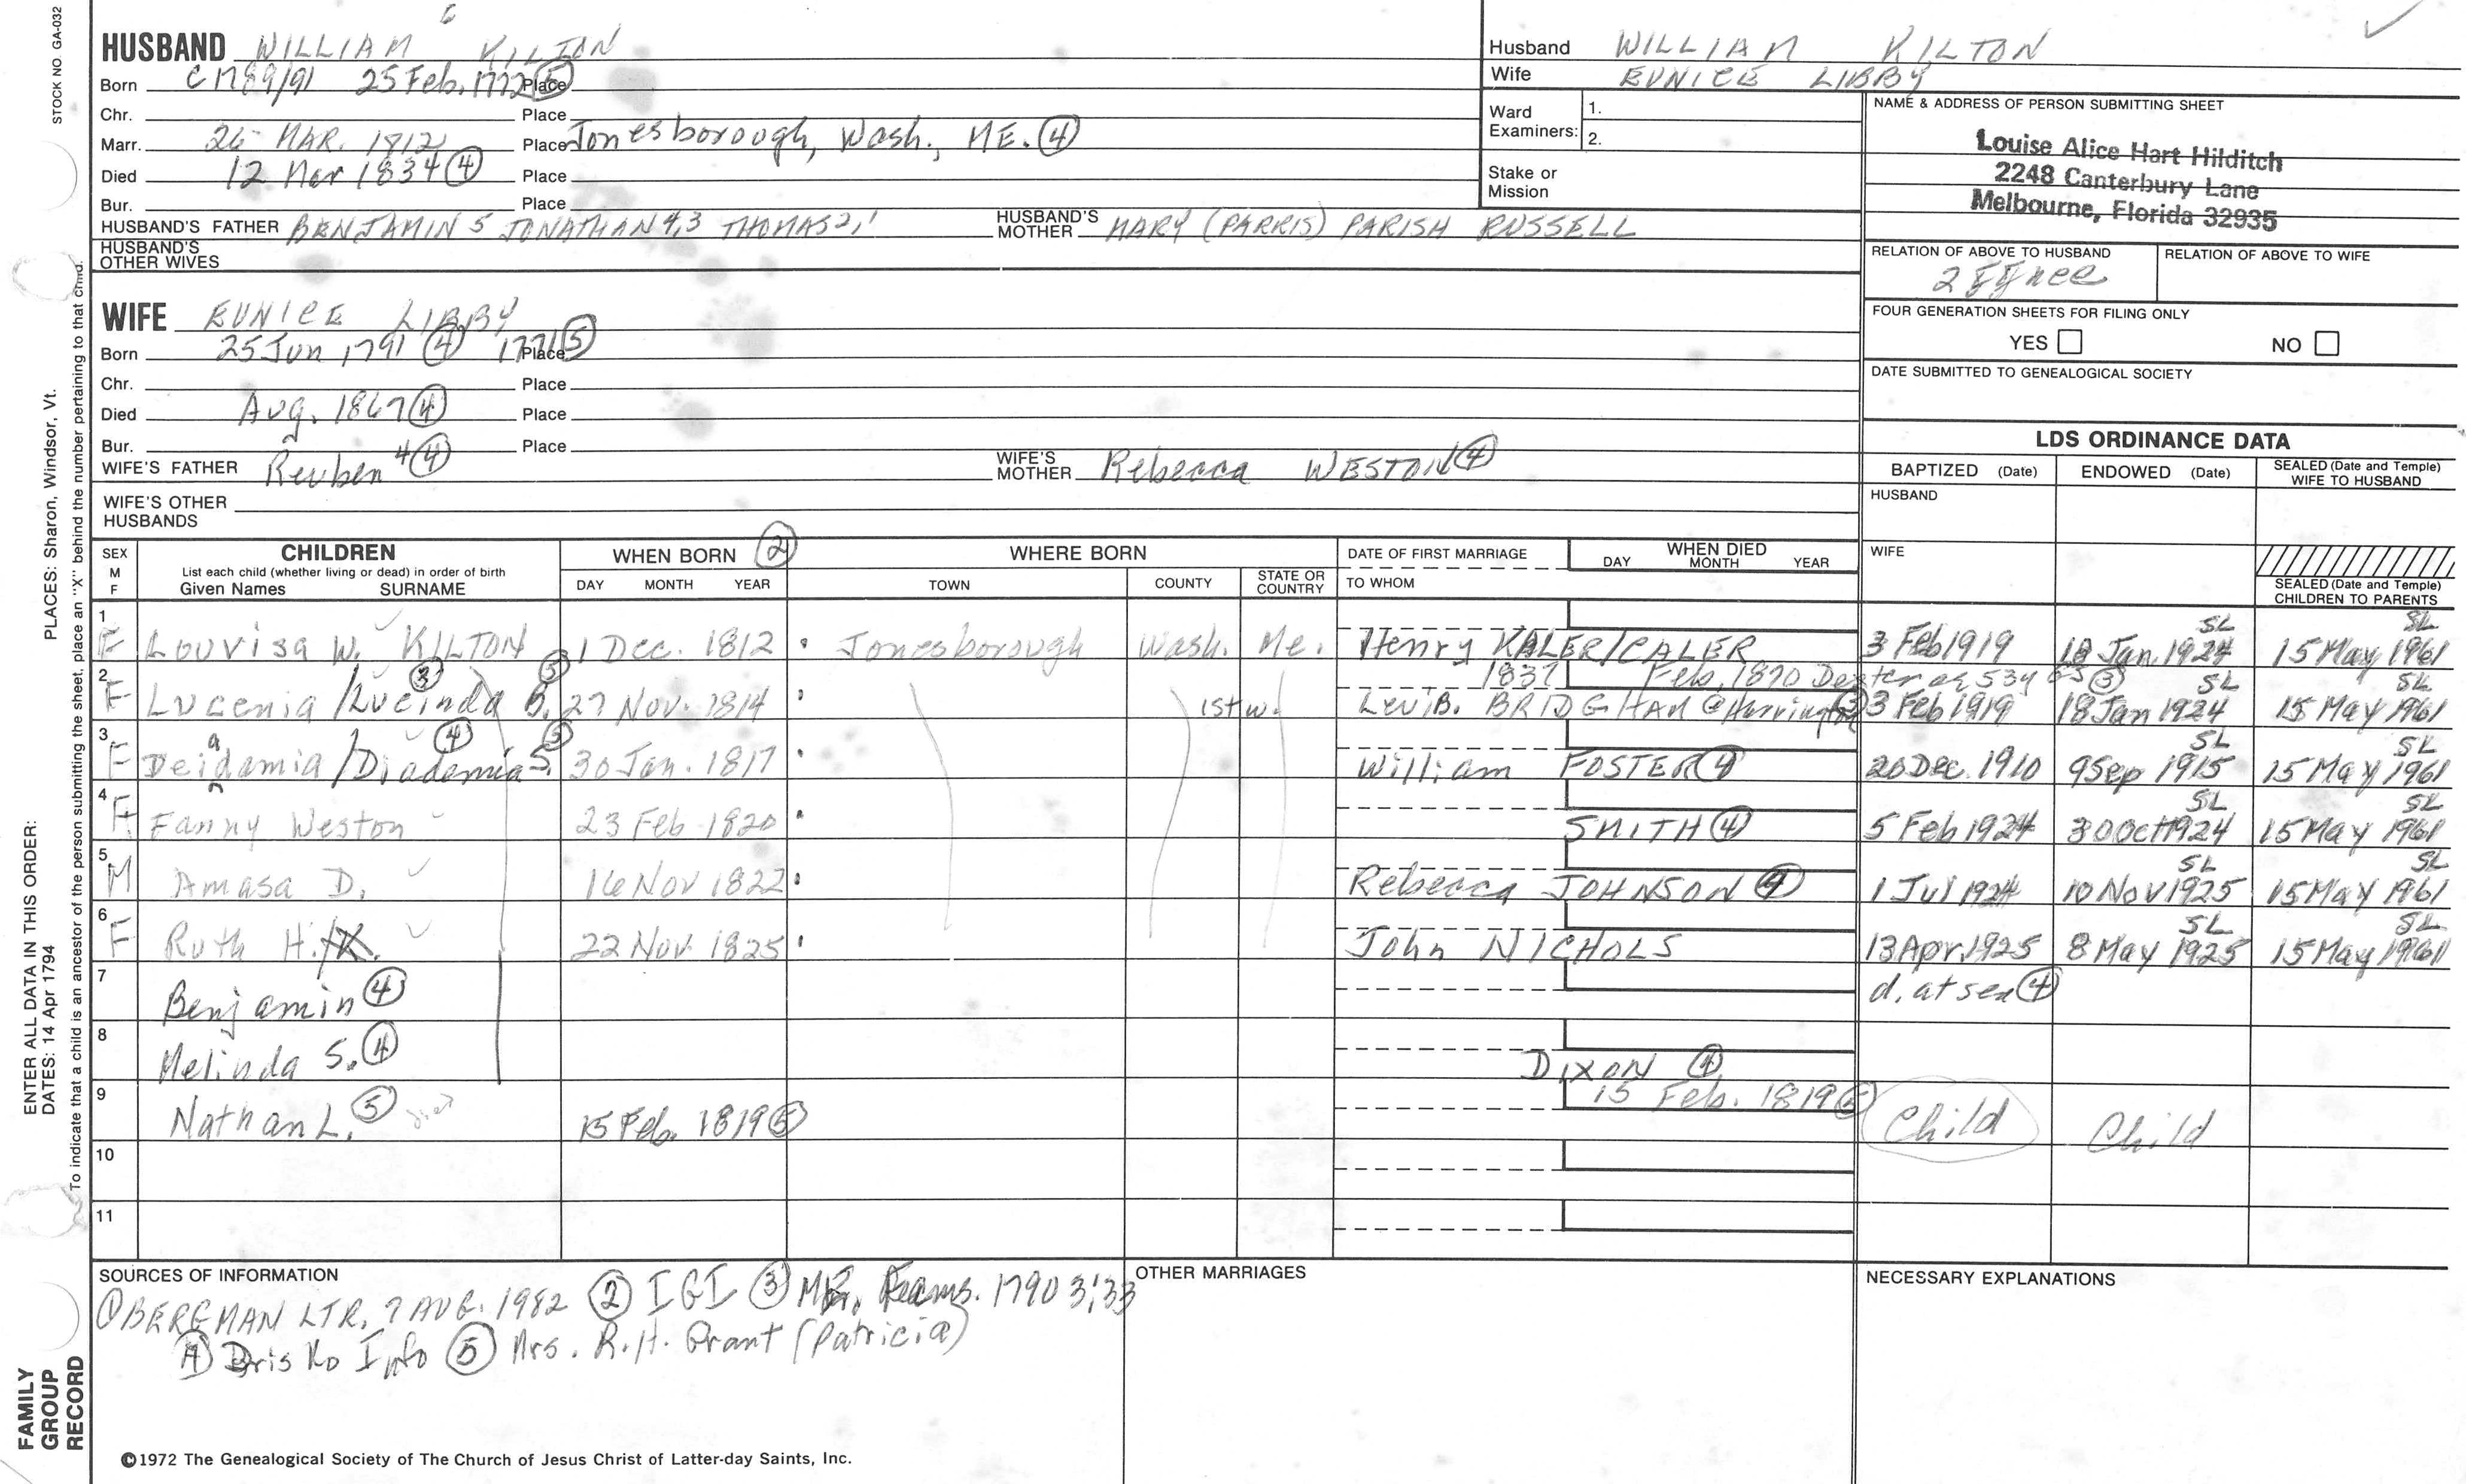 STOCK NO. GA-032
PLACES: Sharon, Windsor, Vt.
ENTER ALL DATA IN THIS ORDER:
DATES: 14 Apr 1794
To indicate that a child is an ancestor of the person submitting the sheet, place an "X" behind the number pertaining to that child.
FAMILY
GROUP
RECORD
6
HUSBAND WILLIAM KILTON
Born C1789/91 25 Feb. 1772 (5) Place
Chr. Place
Marr. 26 MAR. 1812 Place Jonesborough, Wash., ME. (4)
Died 12 Mar 1834 (4) Place
Bur. Place
HUSBAND'S FATHER BENJAMIN 5 JONATHAN 4,3 THOMAS 2,1 HUSBAND'S MOTHER MARY (PARRIS) PARISH RUSSELL
HUSBAND'S OTHER WIVES
WIFE EUNICE LIBBY
Born 25 Jun 1791 (4) 1771 (5) Place
Chr. Place
Died Aug. 1867 (4) Place
Bur. Place
WIFE'S FATHER Reuben 4 (4) WIFE'S MOTHER Rebecca WESTON (4)
WIFE'S OTHER HUSBANDS
Husband WILLIAM KILTON
Wife EUNICE LIBBY
Ward Examiners: 1.
2.
Stake or Mission
NAME & ADDRESS OF PERSON SUBMITTING SHEET
Louise Alice Hart Hilditch
2248 Canterbury Lane
Melbourne, Florida 32935
RELATION OF ABOVE TO HUSBAND RELATION OF ABOVE TO WIFE
FOUR GENERATION SHEETS FOR FILING ONLY
YES NO
DATE SUBMITTED TO GENEALOGICAL SOCIETY
LDS ORDINANCE DATA
BAPTIZED (Date) ENDOWED (Date) SEALED (Date and Temple) WIFE TO HUSBAND
HUSBAND
WIFE
SEALED (Date and Temple) CHILDREN TO PARENTS
SEX M F CHILDREN List each child (whether living or dead) in order of birth Given Names SURNAME
WHEN BORN (2) DAY MONTH YEAR
WHERE BORN TOWN COUNTY STATE OR COUNTRY
DATE OF FIRST MARRIAGE TO WHOM
WHEN DIED DAY MONTH YEAR
1 F Louvisa W. KILTON 1 Dec. 1812 Jonesborough Wash. Me. Henry KALER/CALER 3 Feb 1919 18 Jan 1924 SL 15 May 1961 SL
1837 Feb. 1870 Dexter ae 53y (3)
2 F Lucenia /Lucinda (3) B. (5) 27 Nov. 1814 1st w. Levi B. BRIDGHAM @ Harrington (3) 3 Feb 1919 18 Jan 1924 SL 15 May 1961 SL
3 F Deidamia /Diademia (4) S. (5) 30 Jan. 1817 William FOSTER (4) 20 Dec. 1910 9 Sep 1915 SL 15 May 1961 SL
4 F Fanny Weston 23 Feb 1820 SMITH (4) 5 Feb 1924 30 Oct 1924 SL 15 May 1961 SL
5 M Amasa D. 16 Nov 1822 Rebecca JOHNSON (4) 1 Jul 1924 10 Nov 1925 SL 15 May 1961 SL
6 F Ruth H./K. 22 Nov. 1825 John NICHOLS 13 Apr. 1925 8 May 1925 SL 15 May 1961 SL
7 Benjamin (4) d. at sea (4)
8 Melinda S. (4) DIXON (4)
9 Nathan L. (5) died 15 Feb. 1819 (5) 15 Feb. 1819 (5) Child Child
10
11
SOURCES OF INFORMATION
(1) BERGMAN LTR, 7 AUG. 1982 (2) IGI (3) 1790 3:33
(4) Info (5) Mrs. R.H. Grant (Patricia)
OTHER MARRIAGES
NECESSARY EXPLANATIONS
©1972 The Genealogical Society of The Church of Jesus Christ of Latter-day Saints, Inc.